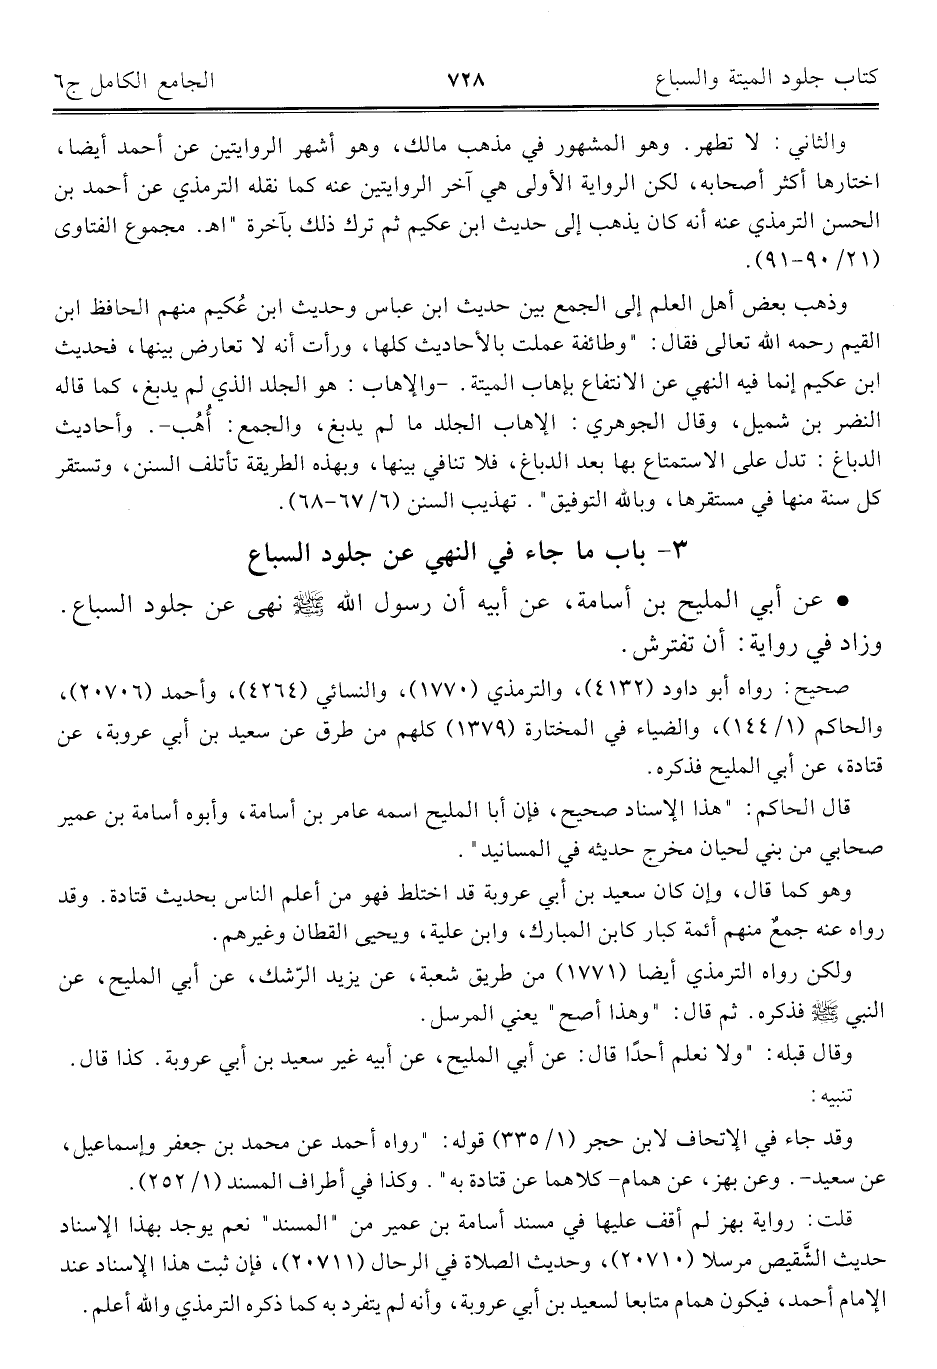 كتاب جلود الميتة والسباع ٧٢٨ الجامع الكامل ج٦
والثاني: لا تطهر. وهو المشهور في مذهب مالك، وهو أشهر الروايتين عن أحمد أيضا،
اختارها أكثر أصحابه، لكن الرواية الأولى هي آخر الروايتين عنه كما نقله الترمذي عن أحمد بن
الحسن الترمذي عنه أنه كان يذهب إلى حديث ابن عكيم ثم ترك ذلك بآخرة "اهـ. مجموع الفتاوى
(٢١/ ٩٠-٩١).
وذهب بعض أهل العلم إلى الجمع بين حديث ابن عباس وحديث ابن عُكيم منهم الحافظ ابن
القيم رحمه الله تعالى فقال: "وطائفة عملت بالأحاديث كلها، ورأت أنه لا تعارض بينها، فحديث
ابن عكيم إنما فيه النهي عن الانتفاع بإهاب الميتة. -والإهاب: هو الجلد الذي لم يدبغ، كما قاله
النضر بن شميل، وقال الجوهري: الإهاب الجلد ما لم يدبغ، والجمع: أُهُب-. وأحاديث
الدباغ: تدل على الاستمتاع بها بعد الدباغ، فلا تنافي بينها، وبهذه الطريقة تأتلف السنن، وتستقر
كل سنة منها في مستقرها، وبالله التوفيق". تهذيب السنن (٦/ ٦٧-٦٨).
٣- باب ما جاء في النهي عن جلود السباع
• عن أبي المليح بن أسامة، عن أبيه أن رسول الله ﷺ نهى عن جلود السباع.
وزاد في رواية: أن تفترش.
صحيح: رواه أبو داود (٤١٣٢)، والترمذي (١٧٧٠)، والنسائي (٤٢٦٤)، وأحمد (٢٠٧٠٦)،
والحاكم (١/ ١٤٤)، والضياء في المختارة (١٣٧٩) كلهم من طرق عن سعيد بن أبي عروبة، عن
قتادة، عن أبي المليح فذكره.
قال الحاكم: "هذا الإسناد صحيح، فإن أبا المليح اسمه عامر بن أسامة، وأبوه أسامة بن عمير
صحابي من بني لحيان مخرج حديثه في المسانيد".
وهو كما قال، وإن كان سعيد بن أبي عروبة قد اختلط فهو من أعلم الناس بحديث قتادة. وقد
رواه عنه جمعٌ منهم أئمة كبار كابن المبارك، وابن علية، ويحيى القطان وغيرهم.
ولكن رواه الترمذي أيضا (١٧٧١) من طريق شعبة، عن يزيد الرّشك، عن أبي المليح، عن
النبي ﷺ فذكره. ثم قال: "وهذا أصح" يعني المرسل.
وقال قبله: "ولا نعلم أحدًا قال: عن أبي المليح، عن أبيه غير سعيد بن أبي عروبة. كذا قال.
تنبيه:
وقد جاء في الإتحاف لابن حجر (١/ ٣٣٥) قوله: "رواه أحمد عن محمد بن جعفر وإسماعيل،
عن سعيد-. وعن بهز، عن همام- كلاهما عن قتادة به". وكذا في أطراف المسند (١/ ٢٥٢).
قلت: رواية بهز لم أقف عليها في مسند أسامة بن عمير من "المسند" نعم يوجد بهذا الإسناد
حديث الشَّقيص مرسلا (٢٠٧١٠)، وحديث الصلاة في الرحال (٢٠٧١١)، فإن ثبت هذا الإسناد عند
الإمام أحمد، فيكون همام متابعا لسعيد بن أبي عروبة، وأنه لم يتفرد به كما ذكره الترمذي والله أعلم.